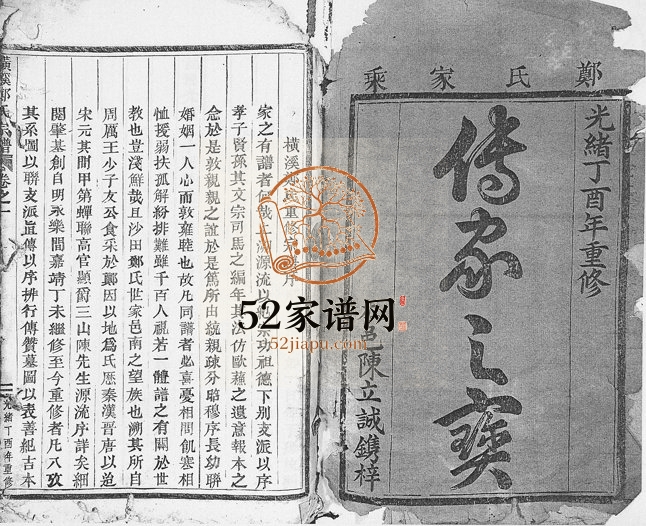 鄭氏家乘
光緒丁酉年重修
傳家之寶
邑陳立誠鐫梓
52家谱网
52jiapu.com
橫溪鄭氏重修宗譜序
家之有譜者何哉上溯源流以紀宗功祖德下別支派以序
孝子賢孫其文宗司馬之編年其法仿歐蘇之遺意報本之
念於是敦親親之誼於是篤所由統親疎分昭穆序長幼聯
婚姻一人心而敦雍睦也故凡同譜者必喜憂相問飢寒相
恤援弱扶孤解紛排難雖千百人視若一體譜之有關於世
教也豈淺鮮哉且沙田鄭氏世家邑南之望族也溯其所自
周厲王少子友公食采於鄭因以地爲氏歷秦漢晉唐以迨
宋元其財甲第蟬聯高官顯爵三山陳先生源流序詳矣細
閱肇基創自明永樂間嘉靖丁未繼修至今重修者凡八攷
其系圖以聯支派直傳以序排行傳贊墓圖以表善紀吉本
橫溪鄭氏宗譜 卷之一
光緒丁酉年重修